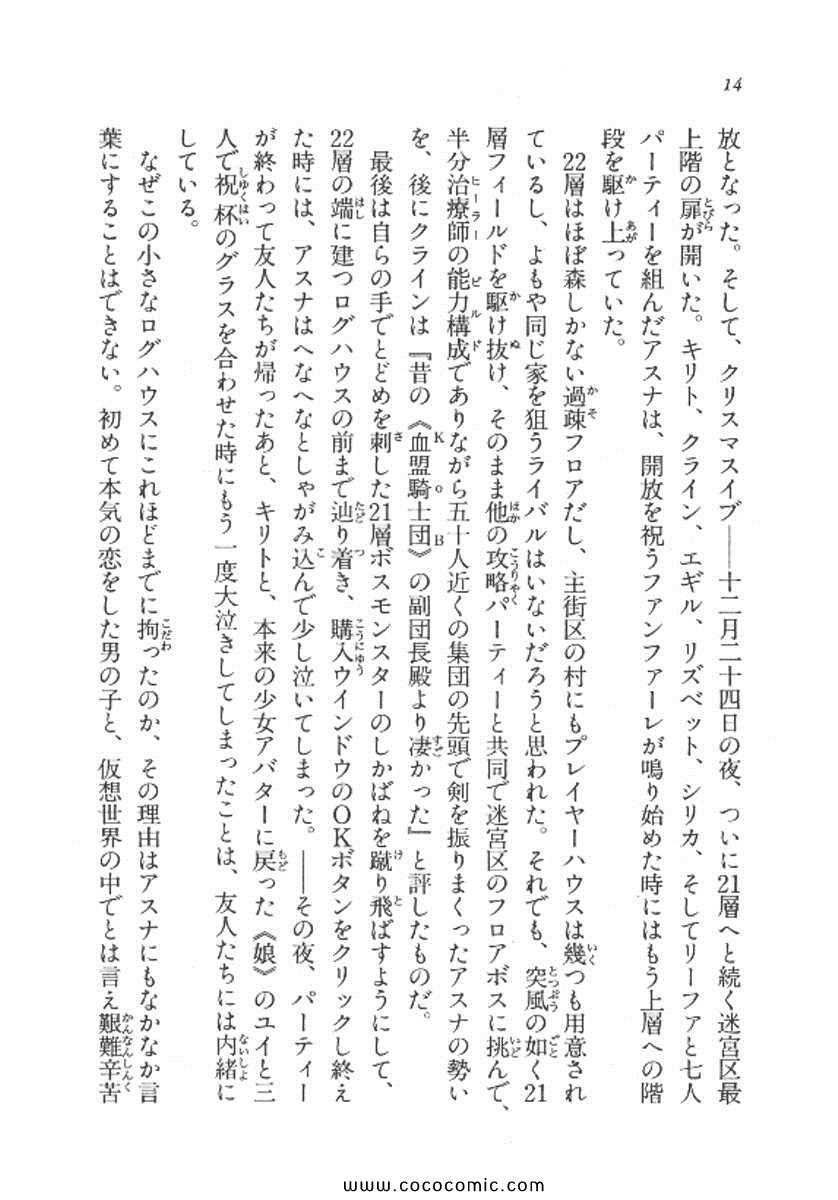 14
放となった。そして、クリスマスイブ――十二月二十四日の夜、ついに21層へと続く迷宮区最
上階の扉が開いた。キリト、クライン、エギル、リズベット、シリカ、そしてリーファと七人
パーティーを組んだアスナは、開放を祝うファンファーレが鳴り始めた時にはもう上層への階
段を駆け上っていた。
22層はほぼ森しかない過疎フロアだし、主街区の村にもプレイヤーハウスは幾つも用意され
ているし、よもや同じ家を狙うライバルはいないだろうと思われた。それでも、突風の如く21
層フィールドを駆け抜け、そのまま他の攻略パーティーと共同で迷宮区のフロアボスに挑んで、
半分治療師の能力構成でありながら五十人近くの集団の先頭で剣を振りまくったアスナの勢い
を、後にクラインは『昔の《血盟騎士団》の副団長殿より凄かった』と評したものだ。
最後は自らの手でとどめを刺した21層ボスモンスターのしかばねを蹴り飛ばすようにして、
22層の端に建つログハウスの前まで辿り着き、購入ウインドウのOKボタンをクリックし終え
た時には、アスナはへなへなとしゃがみ込んで少し泣いてしまった。――その夜、パーティー
が終わって友人たちが帰ったあと、キリトと、本来の少女アバターに戻った《娘》のユイと三
人で祝杯のグラスを合わせた時にもう一度大泣きしてしまったことは、友人たちには内緒に
している。
なぜこの小さなログハウスにこれほどまでに拘ったのか、その理由はアスナにもなかなか言
葉にすることはできない。初めて本気の恋をした男の子と、仮想世界の中でとは言え艱難辛苦
www.cococomic.com